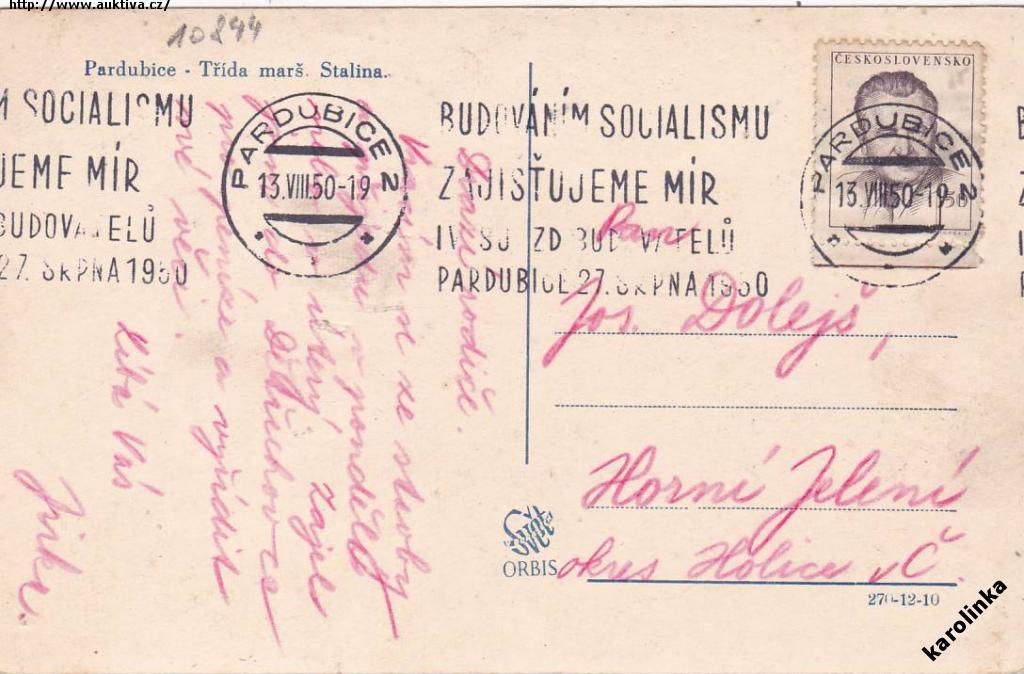 http://www.auktiva.cz/
10844
Pardubice - Třída marš. Stalina.
M SOCIALISMU
JEME MÍR
BUDOVATELŮ
27. SRPNA 1950
PARDUBICE 2
13.VIII.50-19
BUDOVÁNÍM SOCIALISMU
ZAJIŠŤUJEME MÍR
IV. SJEZD BUDOVATELŮ
PARDUBICE 27. SRPNA 1950
ČESKOSLOVENSKO
PARDUBICE 2
13.VIII.50-19
Drazí rodiče.
se ze služby
v pondělí
v úterý zajel
do Dětřichovce
pro peníze a vyřídit
své věci.
Líbá Vás
Jirka.
Pan
Jos. Dolejš,
Horní Jelení
okres Holice v Č.
Svět
ORBIS
270-12-10
karolinka